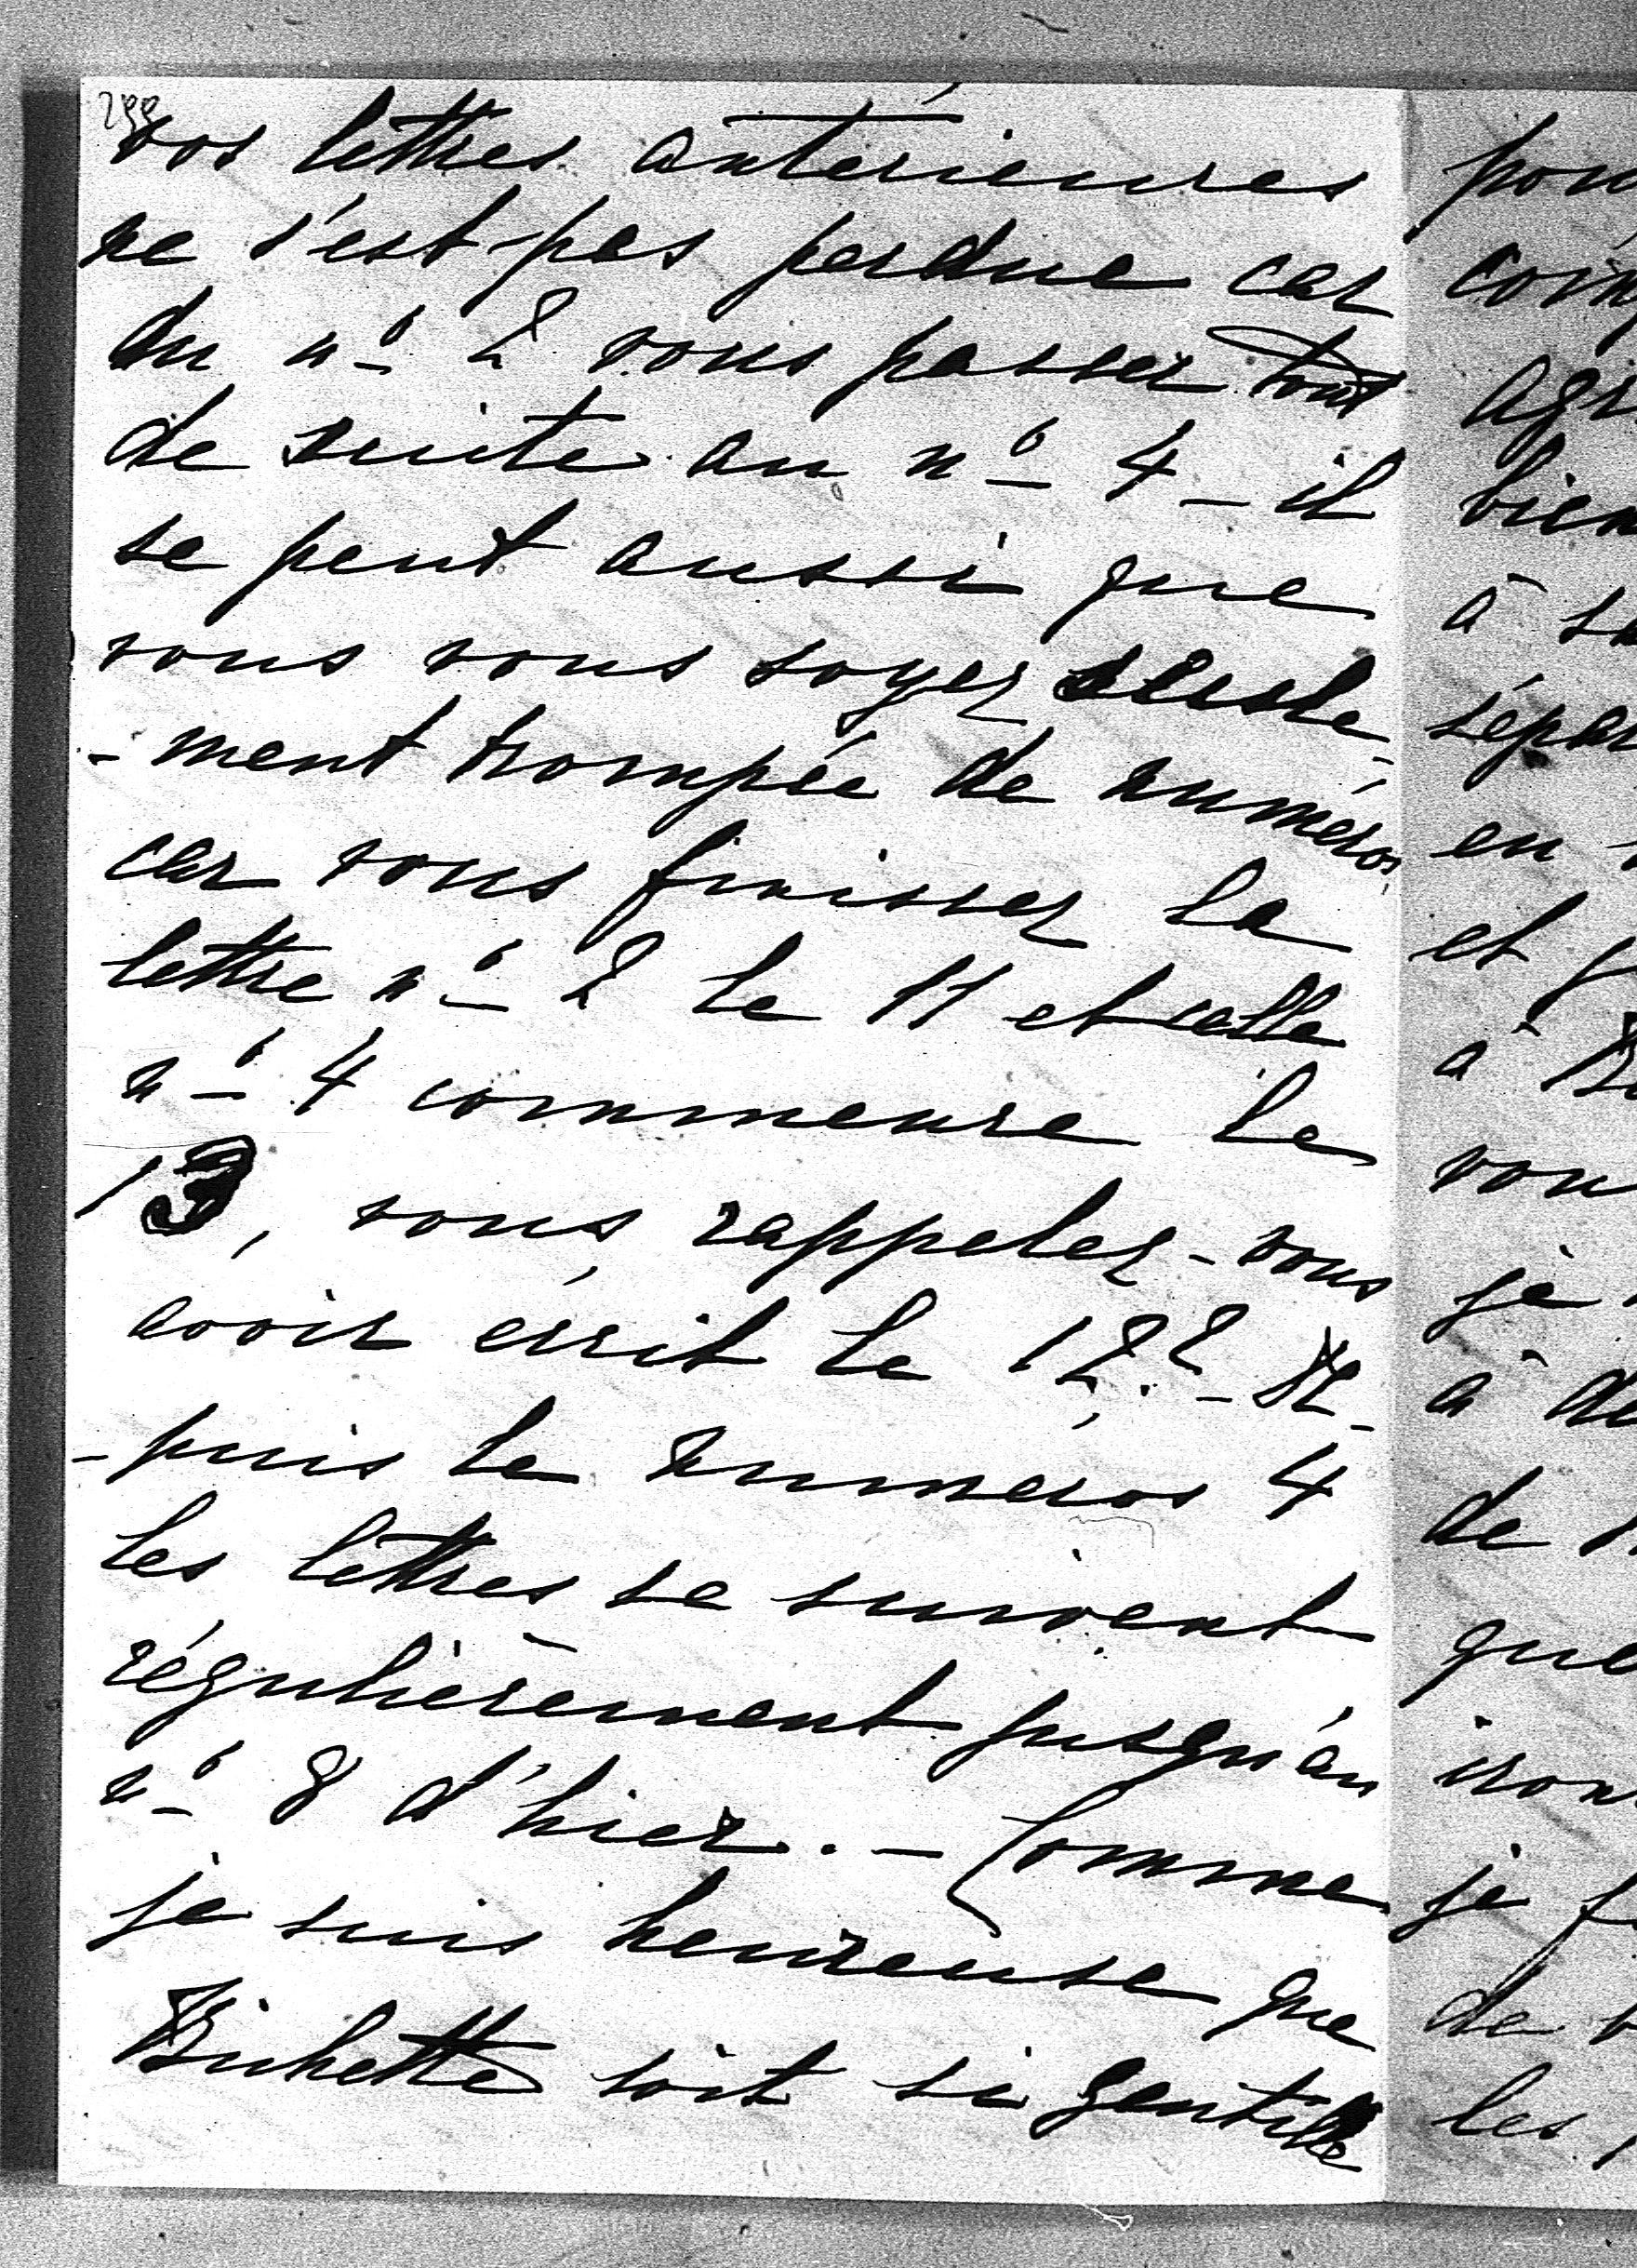 vos lettres antérieures
ne s'est pas perdue car
du nº 2 vous passez tout
de suite au nº 4 – il
se peut aussi que
vous vous soyez seule-
-ment trompée de numéros
car vous finissez la
lettre nº 2 le 11 et celle
nº 4 commence le
13, vous rappelez-vous
avoir écrit le 12? – De-
-puis le numéros 4
les lettres se suivent
régulièrement jusqu'au
nº 8 d'hier. – Comme
je suis heureuse que
soit si gentille
à
en
et
à
je
à
de
je
de
les